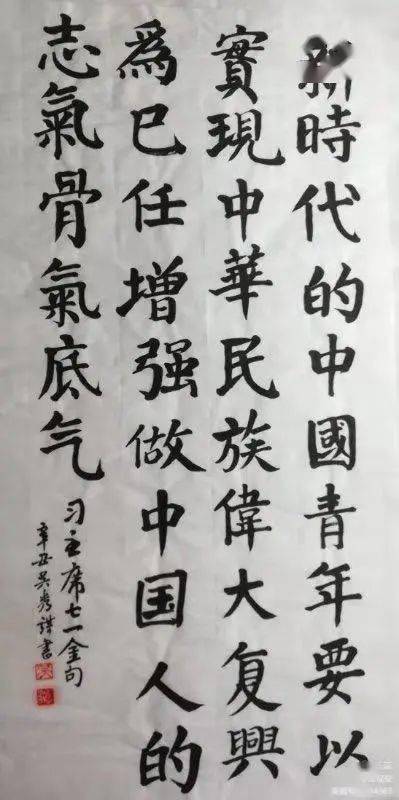 新時代的中國青年要以
實現中華民族偉大复興
爲已任增强做中国人的
志氣骨氣底气
习主席七一金句
辛丑吴秀誅書